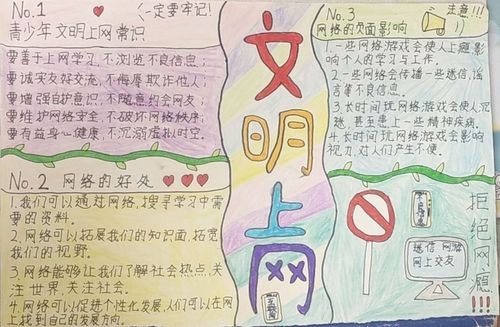 No.1
一定要牢记!
青少年文明上网常识
要善于上网学习,不浏览不良信息;
要诚实友好交流,不侮辱欺诈他人;
要增强自护意识,不随意约会网友;
要维护网络安全,不破坏网络秩序;
要有益身心健康,不沉溺虚拟时空。
No.2 网络的好处
1.我们可以通过网络,搜寻学习中需
要的资料。
2.网络可以拓展我们的知识面,拓宽
我们的视野。
3.网络能够让我们了解社会热点,关
注世界,关注社会。
4.网络可以促进个性化发展,人们可以在网
上找到自己的发展方向。
文
明
上
网
No.3
注意!!!
网络的负面影响
1.一些网络游戏会使人上瘾影
响个人的学习与工作。
2.一些网络会传播一些迷信,谣
言等不良信息。
3.长时间玩网络游戏会使人沉
迷,甚至患上一些精神疾病。
4.长时间玩网络游戏会影响
视力,对人们产生不便。
迷信 网络
网上交友
拒绝网瘾!!!